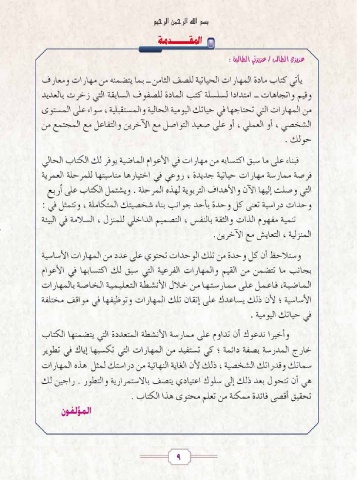 بسم الله الرحمن الرحيم
المقـــدمة
عزيزي الطالب / عزيزتي الطالبة :
يأتي كتاب مادة المهارات الحياتية للصف الثامن ــ بما يتضمنه من مهارات ومعارف
وقيم واتجاهات ــ امتدادا لسلسلة كتب المادة للصفوف السابقة التي زخرت بالعديد
من المهارات التي تحتاجها في حياتك اليومية الحالية والمستقبلية ، سواء على المستوى
الشخصي ، أو العملي ، أو على صعيد التواصل مع الآخرين والتفاعل مع المجتمع من
حولك .
فبناء على ما سبق اكتسابه من مهارات في الأعوام الماضية يوفر لك الكتاب الحالي
فرصة ممارسة مهارات حياتية جديدة ، روعي في اختيارها مناسبتها للمرحلة العمرية
التي وصلت إليها الآن والأهداف التربوية لهذه المرحلة . ويشتمل الكتاب على أربع
وحدات دراسية تعنى كل وحدة بأحد جوانب بناء شخصيتك المتكاملة ، وتتمثل في :
تنمية مفهوم الذات والثقة بالنفس ، التصميم الداخلي للمنزل ، السلامة في البيئة
المنزلية ، التعايش مع الآخرين.
وستلاحظ أن كل وحدة من تلك الوحدات تحتوي على عدد من المهارات الأساسية
بجانب ما تتضمن من القيم والمهارات الفرعية التي سبق لك اكتسابها في الأعوام
الماضية، فاعمل على ممارستها من خلال الأنشطة التعليمية الخاصة بالمهارات
الأساسية ؛ لأن ذلك يساعدك على إتقان تلك المهارات وتوظيفها في مواقف مختلفة
في حياتك اليومية .
وأخيرا ندعوك أن تداوم على ممارسة الأنشطة المتعددة التي يتضمنها الكتاب
خارج المدرسة بصفة دائمة ؛ كي تستفيد من المهارات التي تكسبها إياك في تطوير
سماتك وقدراتك الشخصية ، ذلك لأن الغاية النهائية من دراستك لمثل هذه المهارات
هي أن تتحول بعد ذلك إلى سلوك اعتيادي يتصف بالاستمرارية والتطور . راجين لك
تحقيق أقصى فائدة ممكنة من تعلم محتوى هذا الكتاب .
المؤلفون
٩